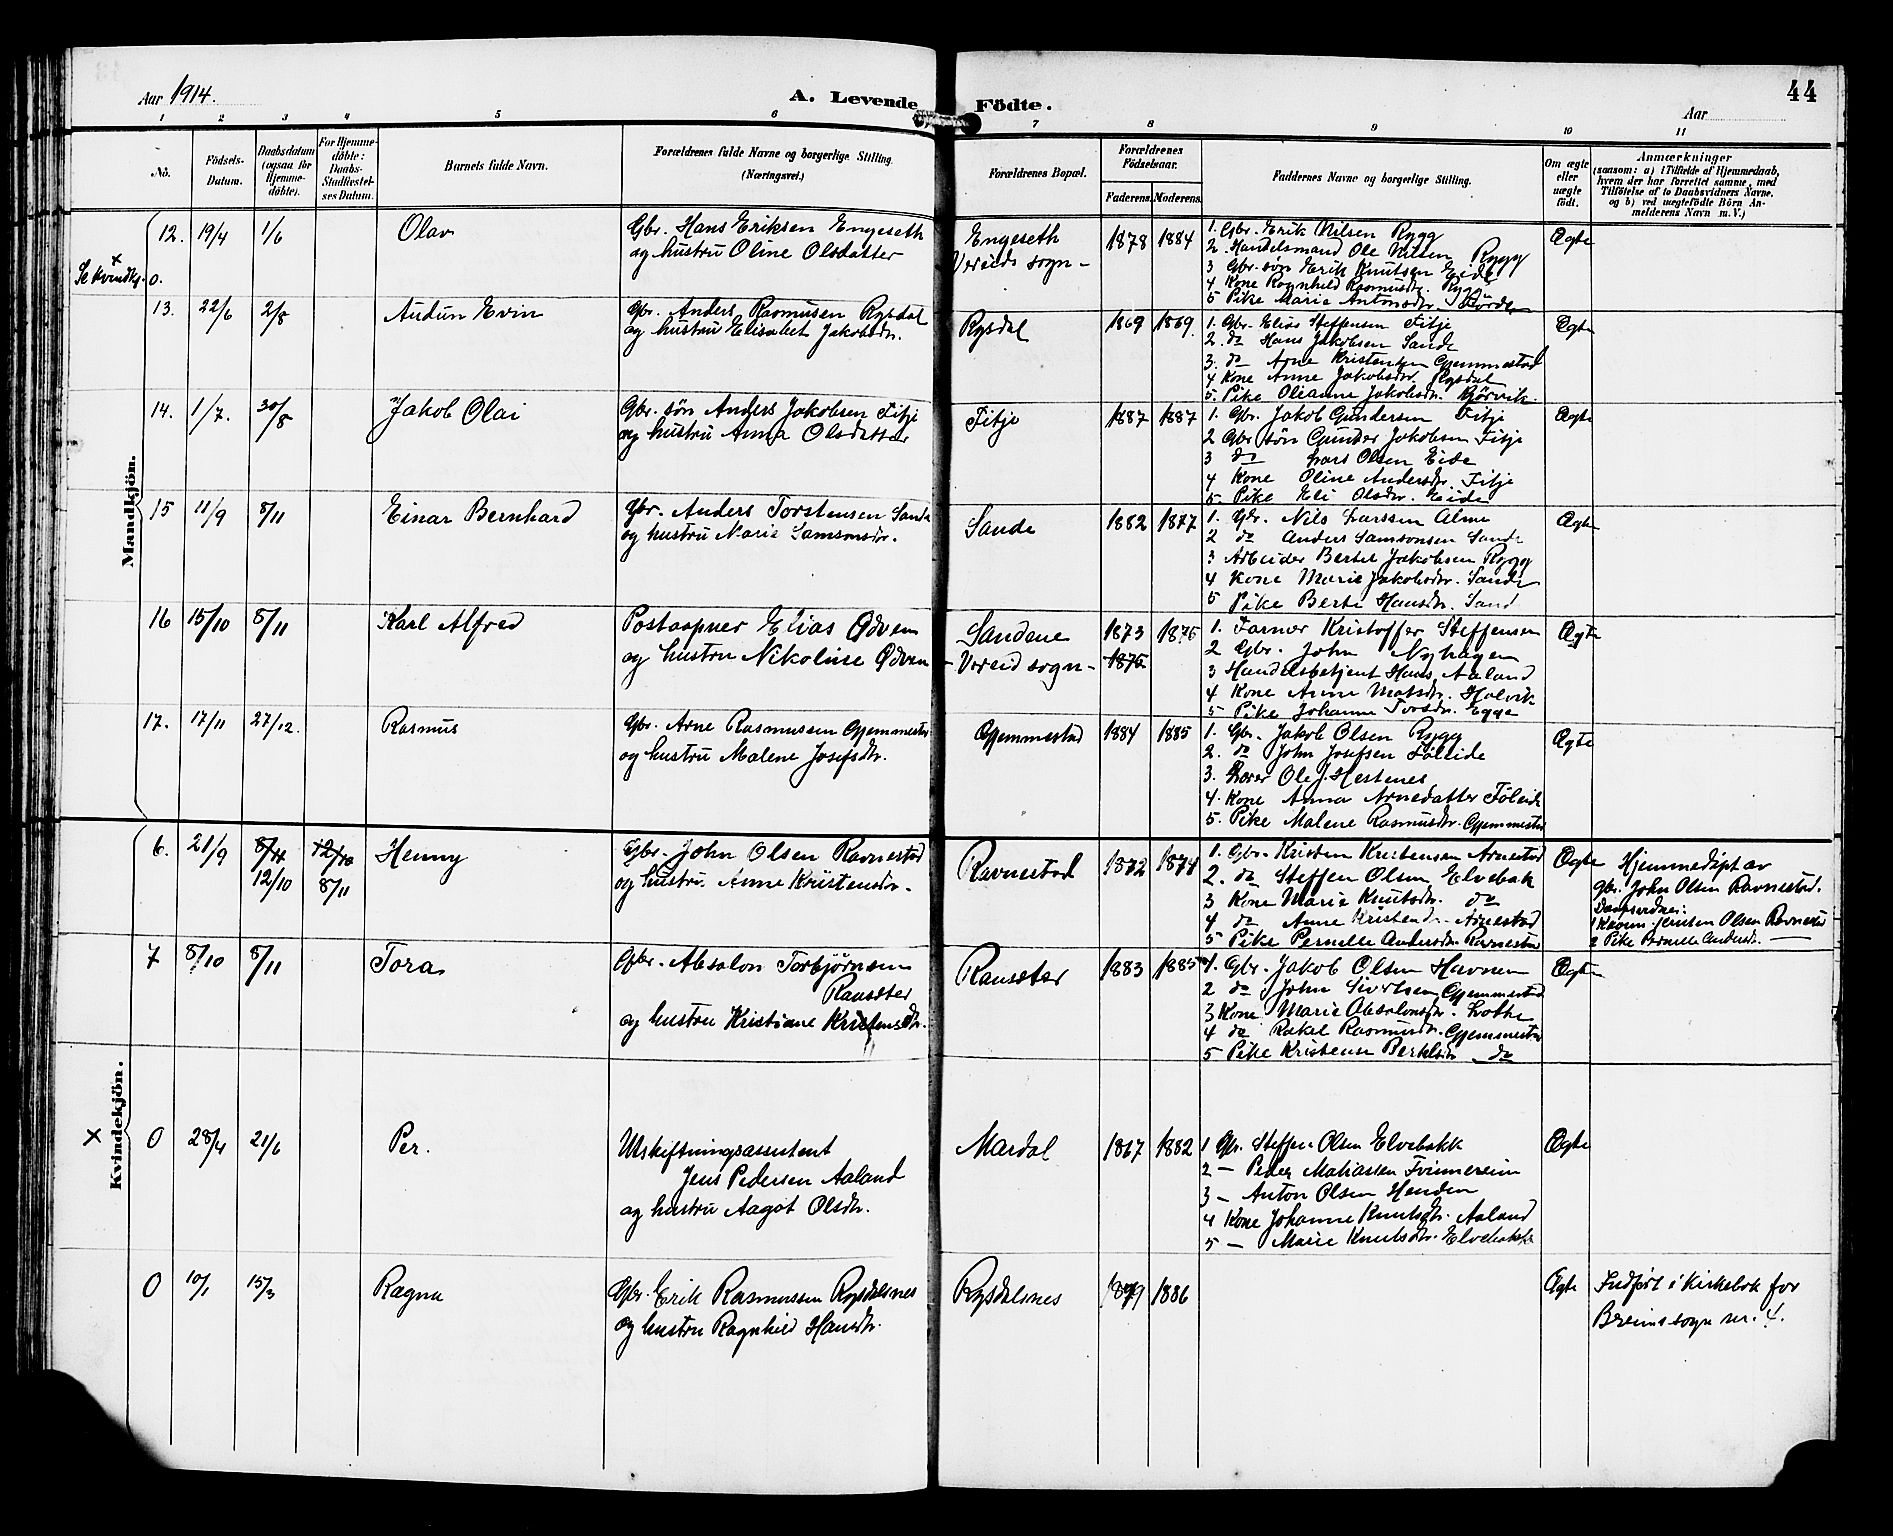 Aar 1914.
A. Levende Födte.
Aar
44
1 2 3 4 5 6 7 8 9 10 11
No.
Födsels-
Datum.
Daabsdatum
(ogsaa for
Hjemme-
döbte).
For Hjemme-
döbte:
Daabs-
Stadfæstel-
ses Datum.
Barnets fulde Navn.
Forældrenes fulde Navne og borgerlige Stilling.
(Næringsvei.)
Forældrenes Bopæl.
Forældrenes
Födselsaar.
Faderens. Moderens.
Faddernes Navne og borgerlige Stilling.
Om ægte
eller
uægte
födt.
Anmærkninger
(saasom: a) i Tilfælde af Hjemmedaab,
hvem der har forrettet samme, med
Tilföielse af to Daabsvidners Navne.
og b) ved uægtefödte Börn An-
melderens Navn m. V.)
Mandkjön.
12. 19/4 1/6 Olav
Gbr. Hans Eriksen Engeseth
og hustru Oline Olsdatter
Engeseth
Vereids sogn –
1878 1884
1. Gbr. Erik Nilsen Rygg
2. Handelsmand Ole Nilsen Rygg
3 Gbr. søn Erik Knutsen Eide
4. Kone Ragnhild Rasmusdtr. Rygg
5 Pike Marie Antonsdtr. Førde
Ægte
x
Se Kvindkj. 0.
13. 22/6 2/8 Audun Evin
Gbr. Anders Rasmusen Rysdal
og hustru Elisabet Jakobsdtr.
Rysdal
1869 1869.
1. Gbr. Elias Steffensen Fitje
2. do Hans Jakobsen Sande
3. do Arne Kristensen Gjemmestad
4 Kone Anne Jakobsdtr. Rysdal
5. Pike Olianne Jakobsdtr. Bjørvik
Ægte
14. 1/7. 30/8 Jakob Olai
Gbr. søn Anders Jakobsen Fitje
og hustru Anna Olsdatter
Fitje
1887 1887
1. Gbr. Jakob Gundersen Fitje
2 Gbr søn Gunder Jakobsen Fitje
3 do Lars Olsen Eide
4 Kone Oline Andersdtr. Fitje
5. Pike Eli Olsdtr. Eide
Ægte
15 11/9 8/11 Einar Bernhard
Gbr. Anders Torstensen Sande
og hustru Marie Samsonsdtr.
Sande
1882 1877
1. Gbr. Nils Larssen Alme
2 do Anders Samsonsen Sande
3 Arbeider Bertel Jakobsen Rygg
4 Kone Marie Jakobsdtr. Sande
5 Pike Berte Hansdtr. Sand
Ægte
16 15/10 8/11 Karl Alfred
Postaapner Elias Ødven
og hustru Nikoline Ødven
Sandene
– Vereid sogn –
1873 1876
1875
1. Farver Kristoffer Steffensen
2 Gbr. John Nyhagen
3 Handelsbetjent Hans Aaland
4 Kone Anne Matsdtr. Holvik
5 Pike Johanne Torsdtr. Egge
Ægte
17. 17/11 27/12. Rasmus
Gbr. Arne Rasmussen Gjemmestad
og hustru Malene Josefsdtr.
Gjemmestad
1884 1885
1. Gbr. Jakob Olsen Rygg
2. do John Josefsen Føleide
3. Lærer Ole J. Hestenes
4. Kone Anna Arnedatter Føleide
5. Pike Malene Rasmusdtr. Gjemmestad
Ægte
Kvindekjön.
6. 21/9 8/11 12/10 Henny
12/10 8/11
Gbr. John Olsen Ravnestad
og hustru. Anne Kristensdtr.
Ravnestad
1872 1874
1. Gbr. Kristen Kristensen Arnestad
2. do Steffen Olsen Elvebak
3 Kone Marie Knutsdtr. do
4 do Anne Kristendtr. Arnestad
5 Pike Pernelle Andersdtr. Ravnestad
Ægte
Hjemmedøpt av
gbr. John Olsen Ravnestad.
1 Kaarm. Jensen Olsen Ravnestad
2 Pike Pernelle Andersdtr. —
7 8/10 8/11 Tora
Gbr. Absalon Torbjørnsen
Raudæter
og hustru Kristiane Kristensdtr.
Raudæter
1883 1885
1. Gbr. Jakob Olsen Havnen
2 do John Sivertsen Gjemmestad
3 Kone Marie Absalonsdtr. Lothe
4 do Rakel Rasmusdtr. Gjemmestad
5 Pike Kristense Bertelsdtr do
Ægte
x
0 28/4 21/6 Per.
Utskiftningsassistent
Jens Pedersen Aaland
og hustru Aagot Olsdtr.
Mardal
1867 1882
1 Gbr. Steffen Olsen Elvebakk
2 – Peder Matiassen Tvinnereim
3 – Anton Olsen Henden
4 Kone Johanne Knutsdtr. Aaland
5 – Marie Knutsdtr. Elvebakk
Ægte
0 10/1 15/3 Ragna
Gbr. Erik Rasmussen Rysdalsnes
og hustru Ragnhild Hansdtr.
Rysdalsnes
1879 1886
Ægte
Indført i Kirkebok for
Breims sogn nr. 4.